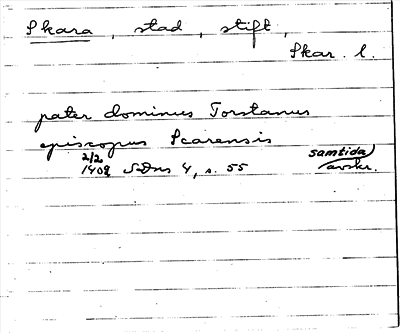 Skara, stad, stift,
Skar. l.
pater dominus Torstanus
episcopus Scarensis
2/2 1408 SDns 4, s. 55 samtida avskr.